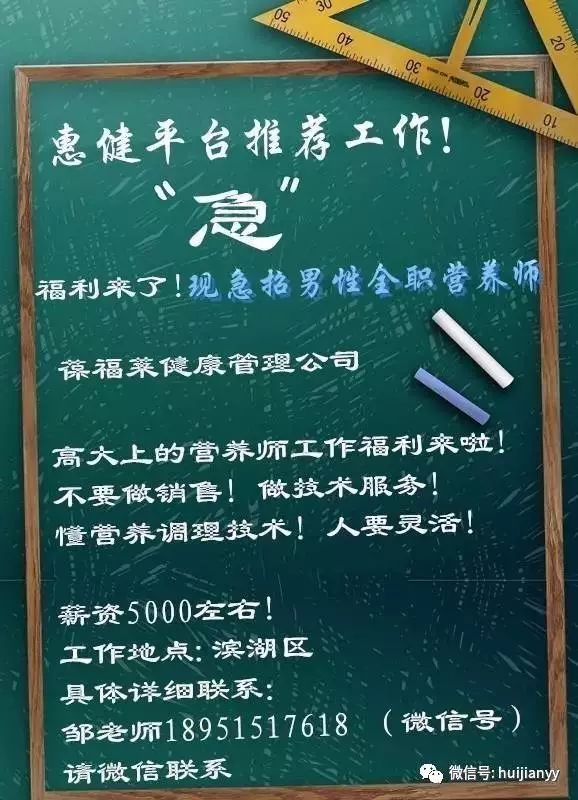 惠健平台推荐工作！
“急”
福利来了！现急招男性全职营养师
葆福莱健康管理公司
高大上的营养师工作福利来啦！
不要做销售！做技术服务！
懂营养调理技术！人要灵活！
薪资5000左右！
工作地点：滨湖区
具体详细联系：
邹老师18951517618 （微信号）
请微信联系
微信号: huijianyy